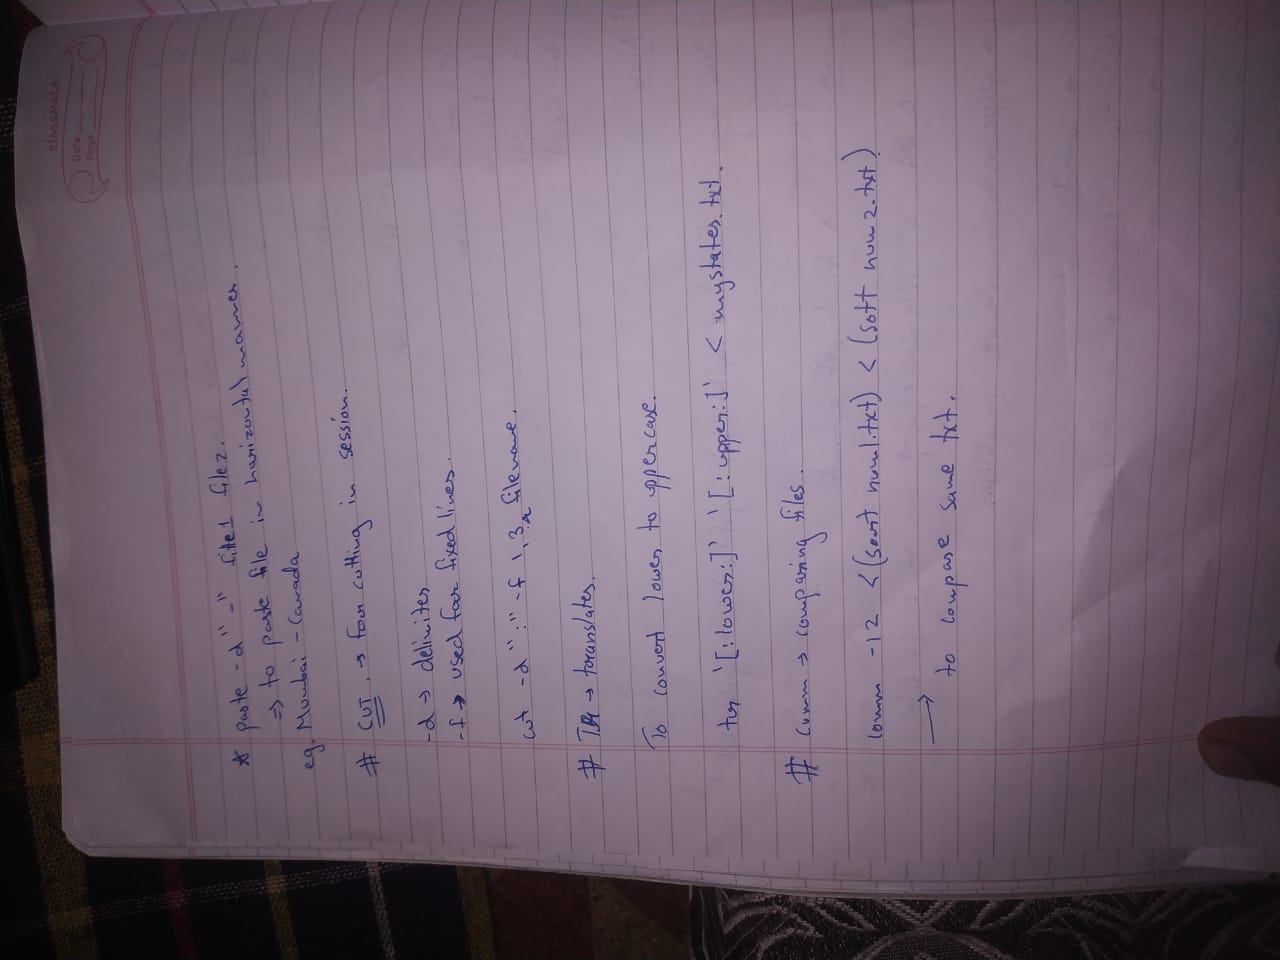 classmate
Date
Page
* paste -d "-" file1 file2.
=> to paste file in horizontal manner.
eg. Mumbai - Canada
# CUT. → for cutting in session.
-d → delimites
-f → used for fixed lines.
cut -d ":" -f 1,3 filename.
# TR → translates.
To convert lower to uppercase.
tr '[:lower:]' '[:upper:]' < mystates.txt.
# Comm → comparing files.
comm -12 <(sort num1.txt) < (sort num2.txt)
→ to compare same txt.